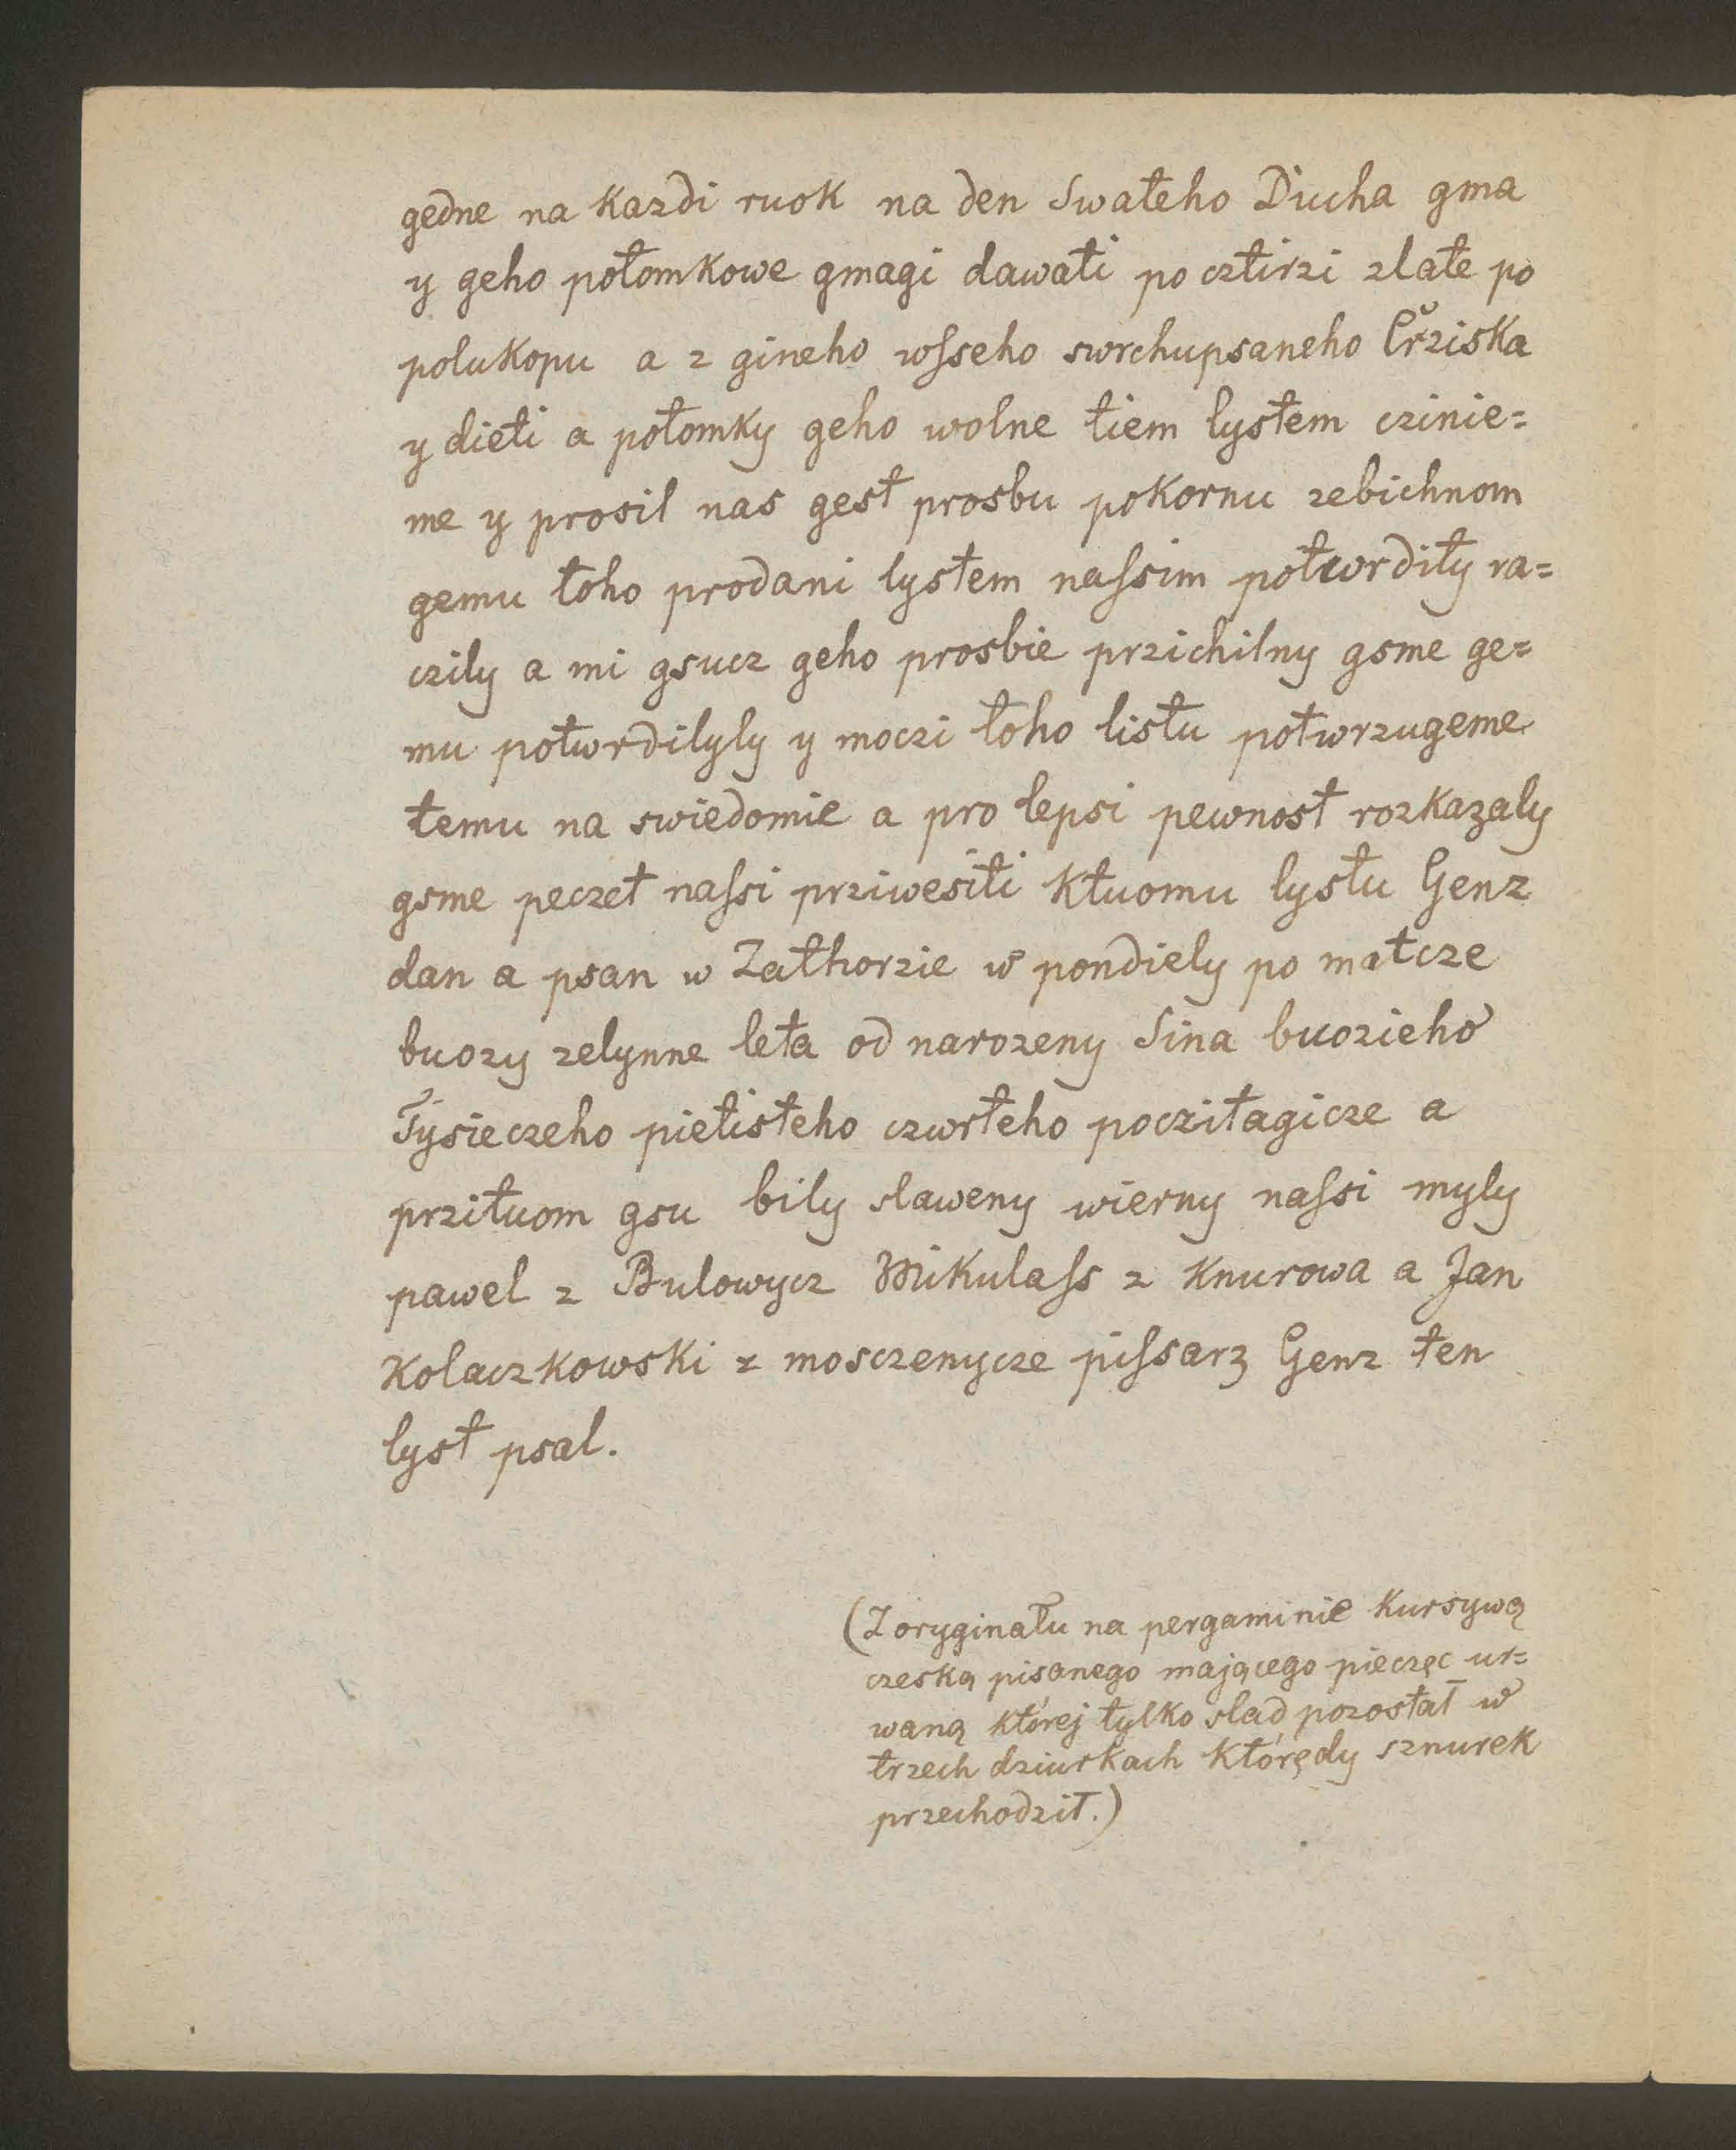 gedne na kazdi ruok na den Swateho Ducha gma
y geho potomkowe gmagi dawati po cztirzi zlate po
polukopu a z gineho wſseho swrchupsaneho Crziska
y dieti a potomky geho wolne tiem lystem czinie=
me y prosil nas gest prosbu pokornu zebichnom
gemu toho prodani lystem naſsim potwrdity ra=
czily a mi gsucz geho prosbie przichilny gsme ge=
mu potwrdilyly y moczi toho listu potwrzugeme
temu na swiedomie a pro lepsi pewnost rozkazaly
gsme peczet naſsi prziwesiti ktuomu lystu Genz
dan a psan w Zathorzie w pondiely po matcze
buozy zelynne leta od narozeny Sina buozieho
Tysieczeho pietisteho czwrteho poczitagicze a
przituom gsu bily slaweny wierny naſsi myly
pawel z Bulowycz Mikulaſs z Knurowa a Jan
Kolaczkowski z mosczenycze piſsarz Genz ten
lyst psal.
(Z oryginału na pergaminie kursywą
czeską pisanego mającego pieczęc ur=
waną której tylko slad pozostał w
trzech dziurkach którędy sznurek
przechodził.)